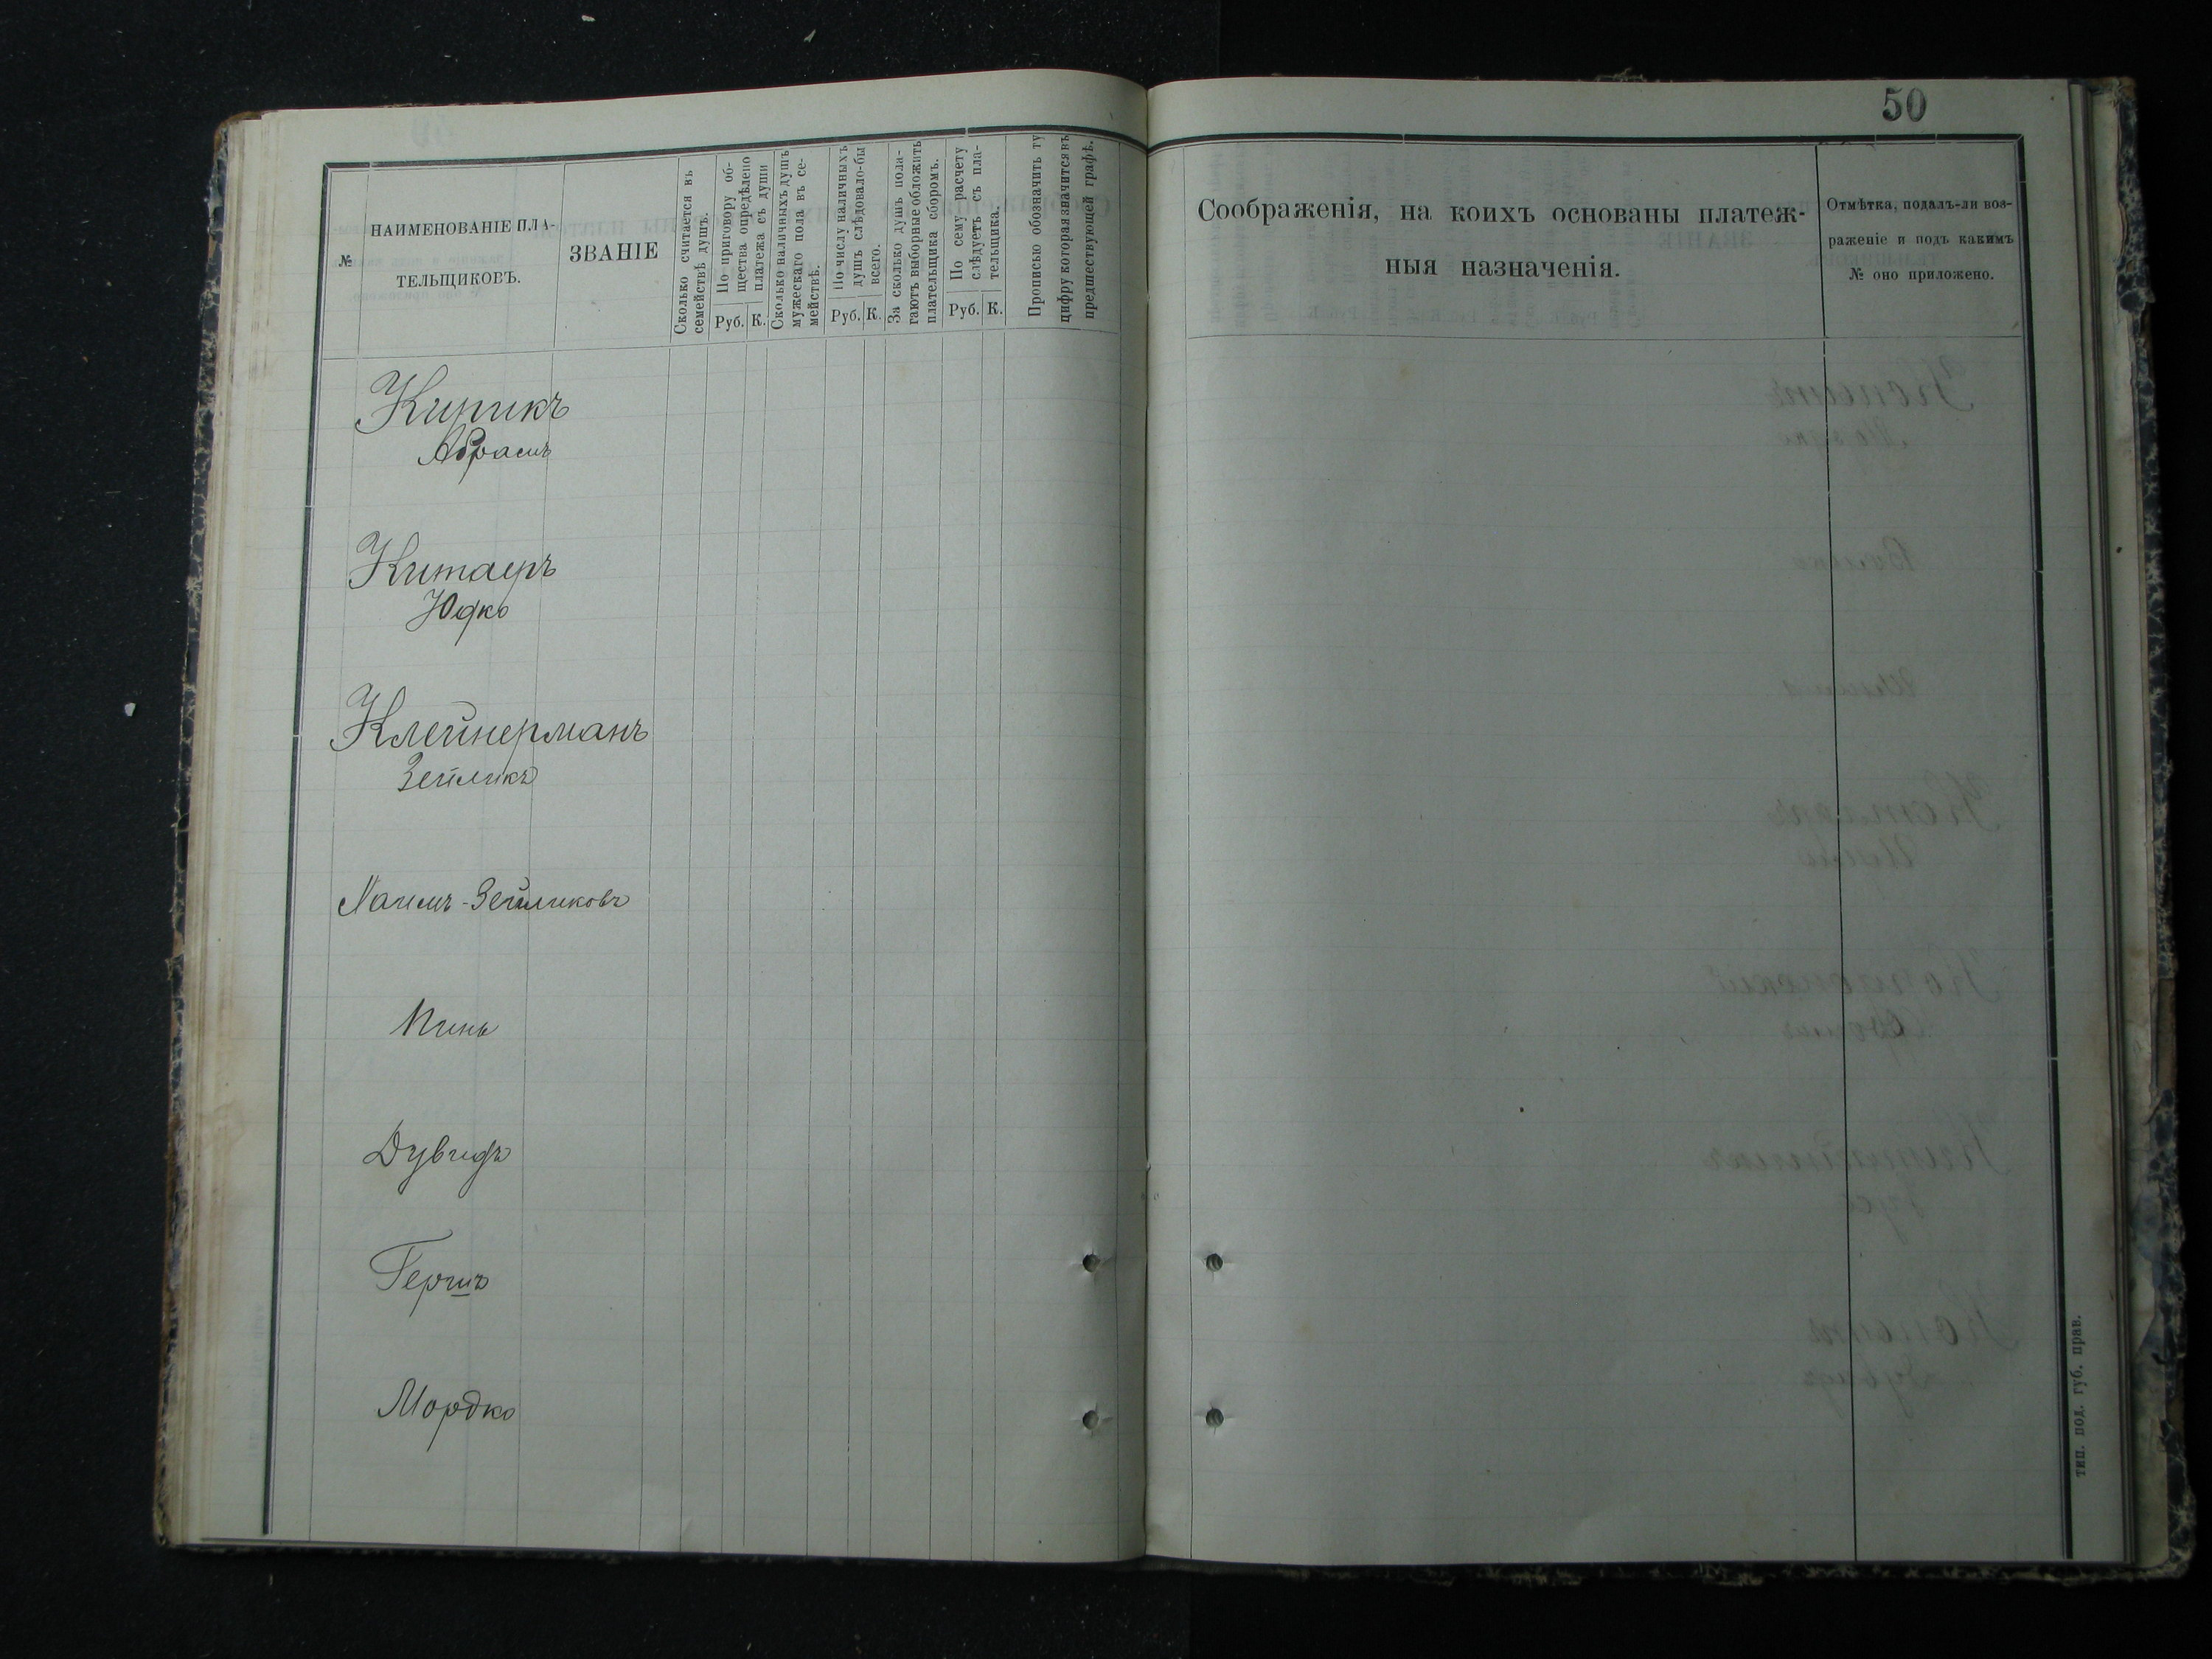 50
№
НАИМЕНОВАНІЕ ПЛА-
ТЕЛЬЩИКОВЪ.
ЗВАНІЕ
Сколько считается въ
семействѣ душъ.
По приговору об-
щества опредѣлено
платежа съ души
Руб. К.
Сколько наличныхъ душъ
мужескаго пола въ се-
мействѣ.
По числу наличныхъ
душъ слѣдовало-бы
всего.
Руб. К.
За сколько душъ пола-
гаютъ выборные обложить
плательщика сборомъ.
По сему расчету
слѣдуетъ съ пла-
тельщика.
Руб. К.
Прописью обозначить ту
цифру которая значится въ
предшествующей графѣ.
Соображенія, на коихъ основаны платеж-
ныя назначенія.
Отмѣтка, подалъ-ли воз-
раженіе и подъ какимъ
№ оно приложено.
Абрамъ
Китаеръ
Юдко
Клейнерманъ
Зейликъ
Хаимъ-Зейликовъ
Дувидъ
Гершъ
Мордко
тип. под. губ. прав.